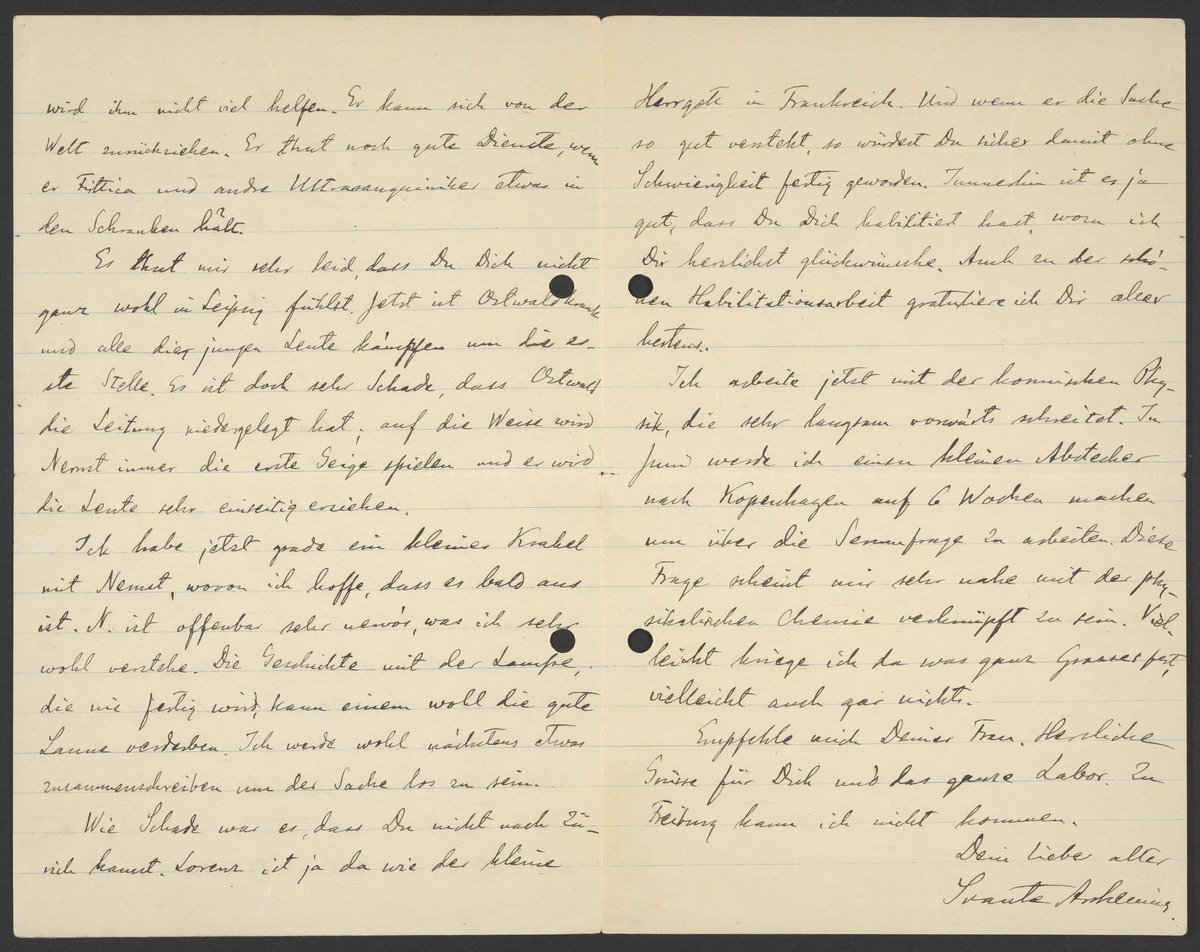 wird ihm nicht viel helfen. Er kann sich von der
Welt zurückziehen. Er thut noch gute Dienste, wenn
er Fittica und andre Ultrasanguiniker etwas in
den Schranken hält.
Es thut mir sehr leid, dass Du Dich nicht
ganz wohl in Leipzig fühlst. Jetzt ist Ostwald krank
und alle die jungen Leute kämpfen um die er-
ste Stelle. Es ist doch sehr Schade, dass Ostwald
die Leitung niedergelegt hat; auf die Weise wird
Nernst immer die erste Geige spielen und er wird
die Leute sehr einseitig erziehen.
Ich habe jetzt grade ein kleiner Krakel
mit Nernst, wovon ich hoffe, dass es bald aus
ist. N. ist offenbar sehr nervös, was ich sehr
wohl verstehe. Die Geschichte mit der Lampe,
die nie fertig wird, kann einem wohl die gute
Laune verderben. Ich werde wohl nächstens etwas
zusammenschreiben um der Sache los zu sein.
Wie Schade war es, dass Du nicht nach Zü-
rich kamst. Lorenz ist ja da wie der kleine
Herrgott in Frankreich. Und wenn er die Sache
so gut versteht, so würdest Du sicher damit ohne
Schwierigkeit fertig geworden. Immerhin ist es ja
gut, dass Du Dich habilitiert hast, wozu ich
Dir herzlichst glückwünsche. Auch zu der schö-
nen Habilitationsarbeit gratuliere ich Dir aller
bestens.
Ich arbeite jetzt mit der kosmischen Phy-
sik, die sehr langsam vorwärts schreitet. In
Juni werde ich einen kleinen Abstecher
nach Kopenhagen auf 6 Wochen machen
um über die Serumfrage zu arbeiten. Diese
Frage scheint mir sehr nahe mit der phy-
sikalischen Chemie verknüpft zu sein. Viel-
leicht kriege ich da was ganz Grosses fest,
vielleicht auch gar nichts.
Empfehle mich Deiner Frau. Herzliche
Grüsse für Dich und das ganze Labor. Zu
Freiburg kann ich nicht kommen.
Dein lieber alter
Svante Arrhenius.